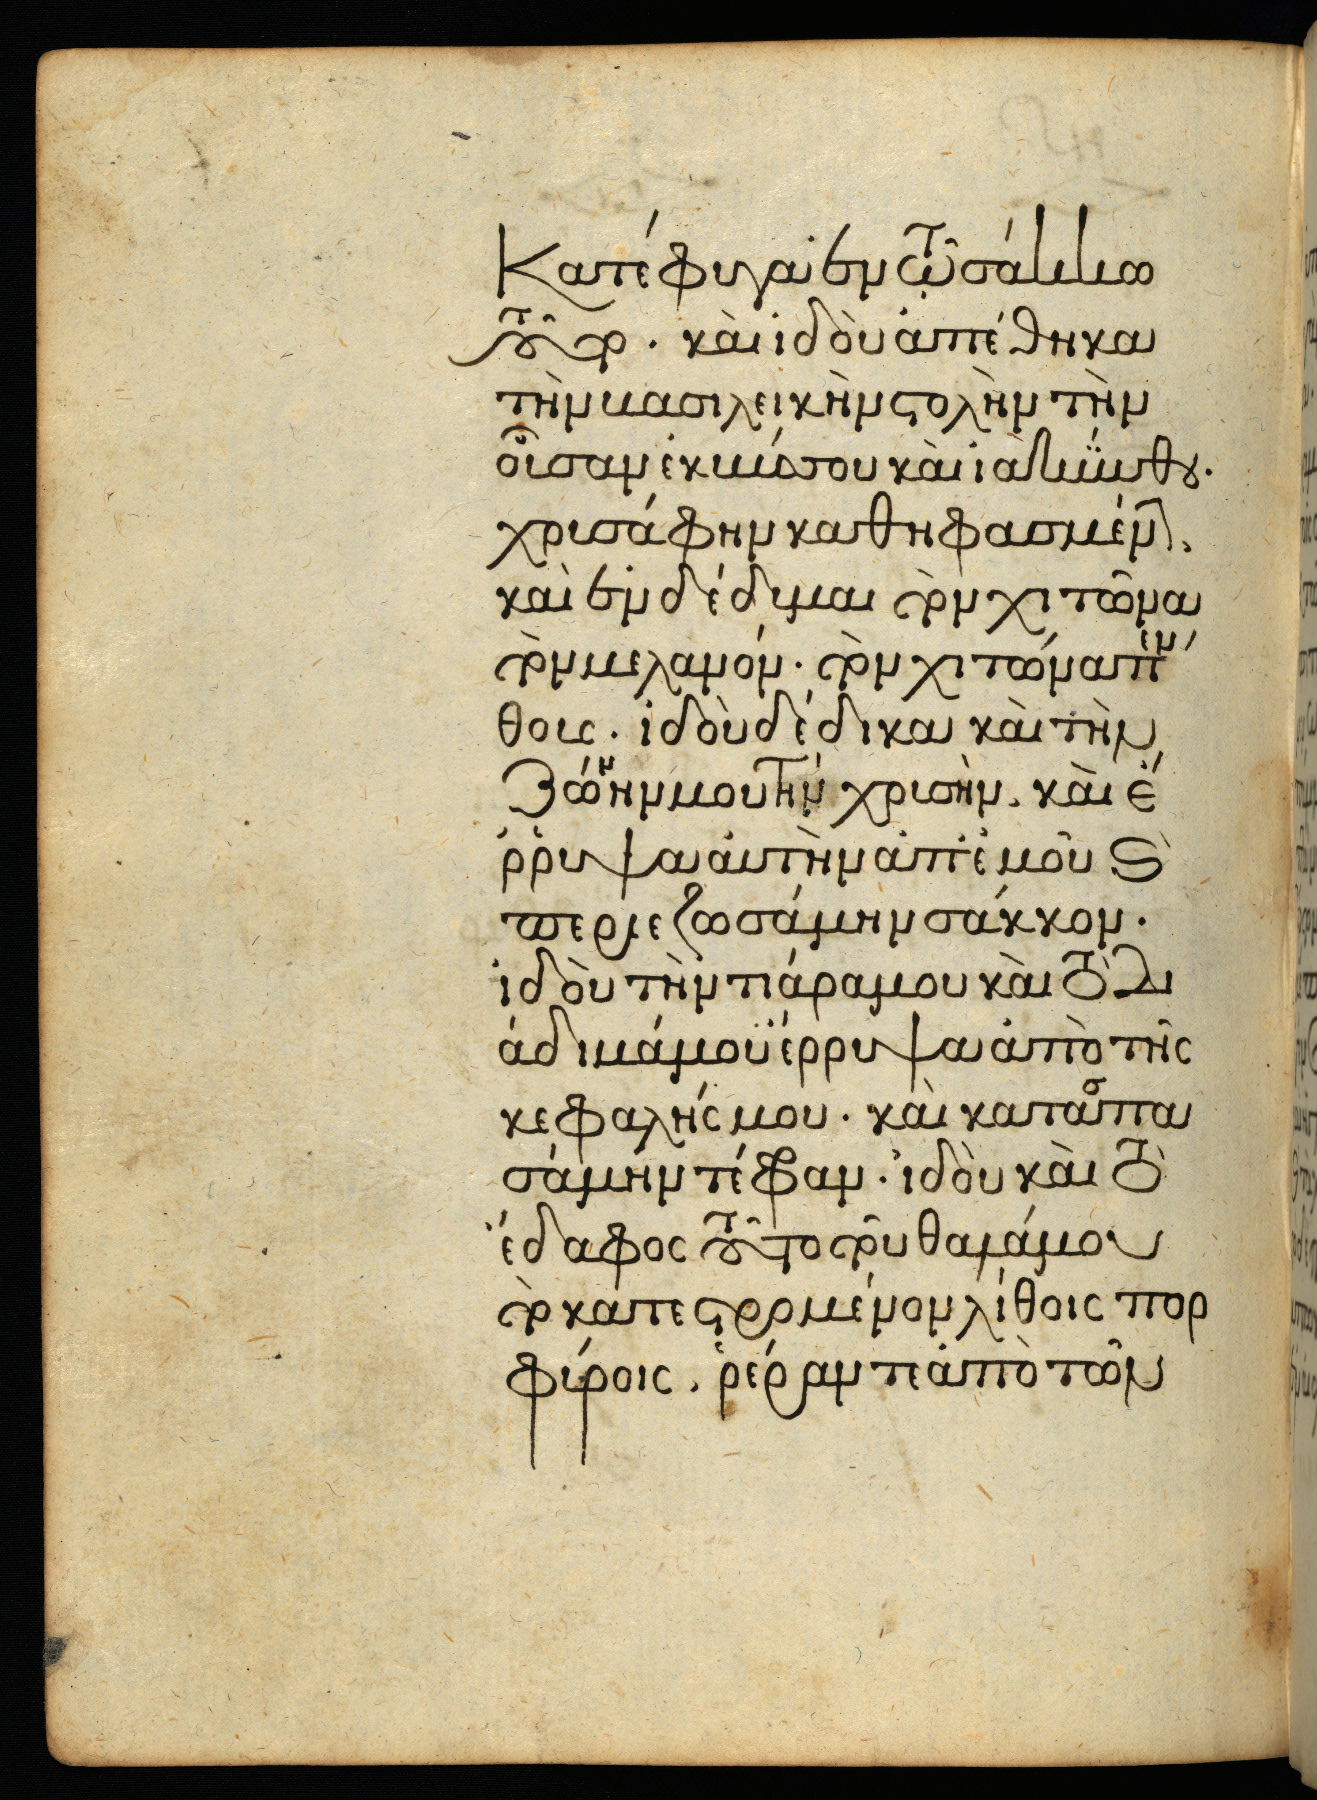 Κατέφυγα ἐν τῷ σάκκω
τούτω· καὶ ἰδοὺ ἀπέθηκα
τὴν βασιλεικὴν στολὴν τὴν
οὖσαν ἐκ βύσσου καὶ ἰακύνθου·
χρισάφην καθηφασμένην.
καὶ ἐνδέδυμαι τὸν χιτῶνα
τὸν μελανόν· τὸν χιτώνα πέν
θους· ἰδοὺ δέδικα καὶ τὴν
ζώνην μου τὴν χρισὴν. καὶ ἔ
ρρυψα αὐτὴν ἀπ' ἐμοῦ καὶ
περιεζωσάμην σάκκον·
ἰδοὺ τὴν τιάραμου καὶ τὸ δι
άδιμάμου ἔρρυψα ἀπὸ τῆς
κεφαλής μου· καὶ καταπα
σάμην τέφραν· ἰδοὺ καὶ τὸ
ἔδαφος τούτο τοῦ θαλάμου
τὸ κατεστρομένον λίθοις πορ
φύροις.